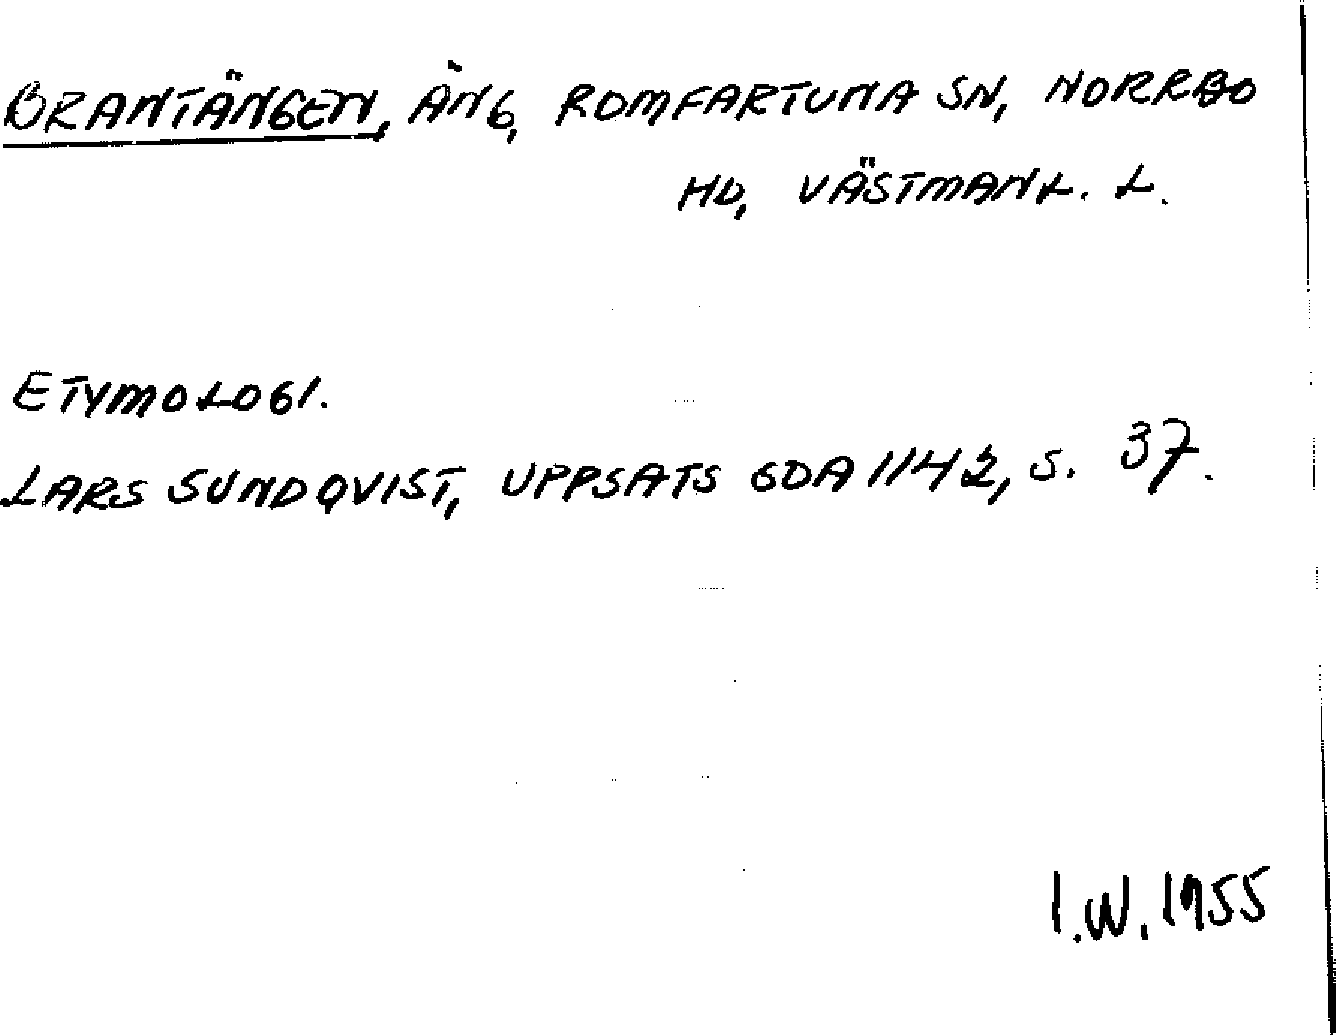 BRANTÄNGEN, ÄNG, ROMFARTUNA SN, NORRBO
HD, VÄSTMANL. L.
ETYMOLOGI.
LARS SUNDQVIST, UPPSATS GDA 1142, S. 37.
I.W. 1955